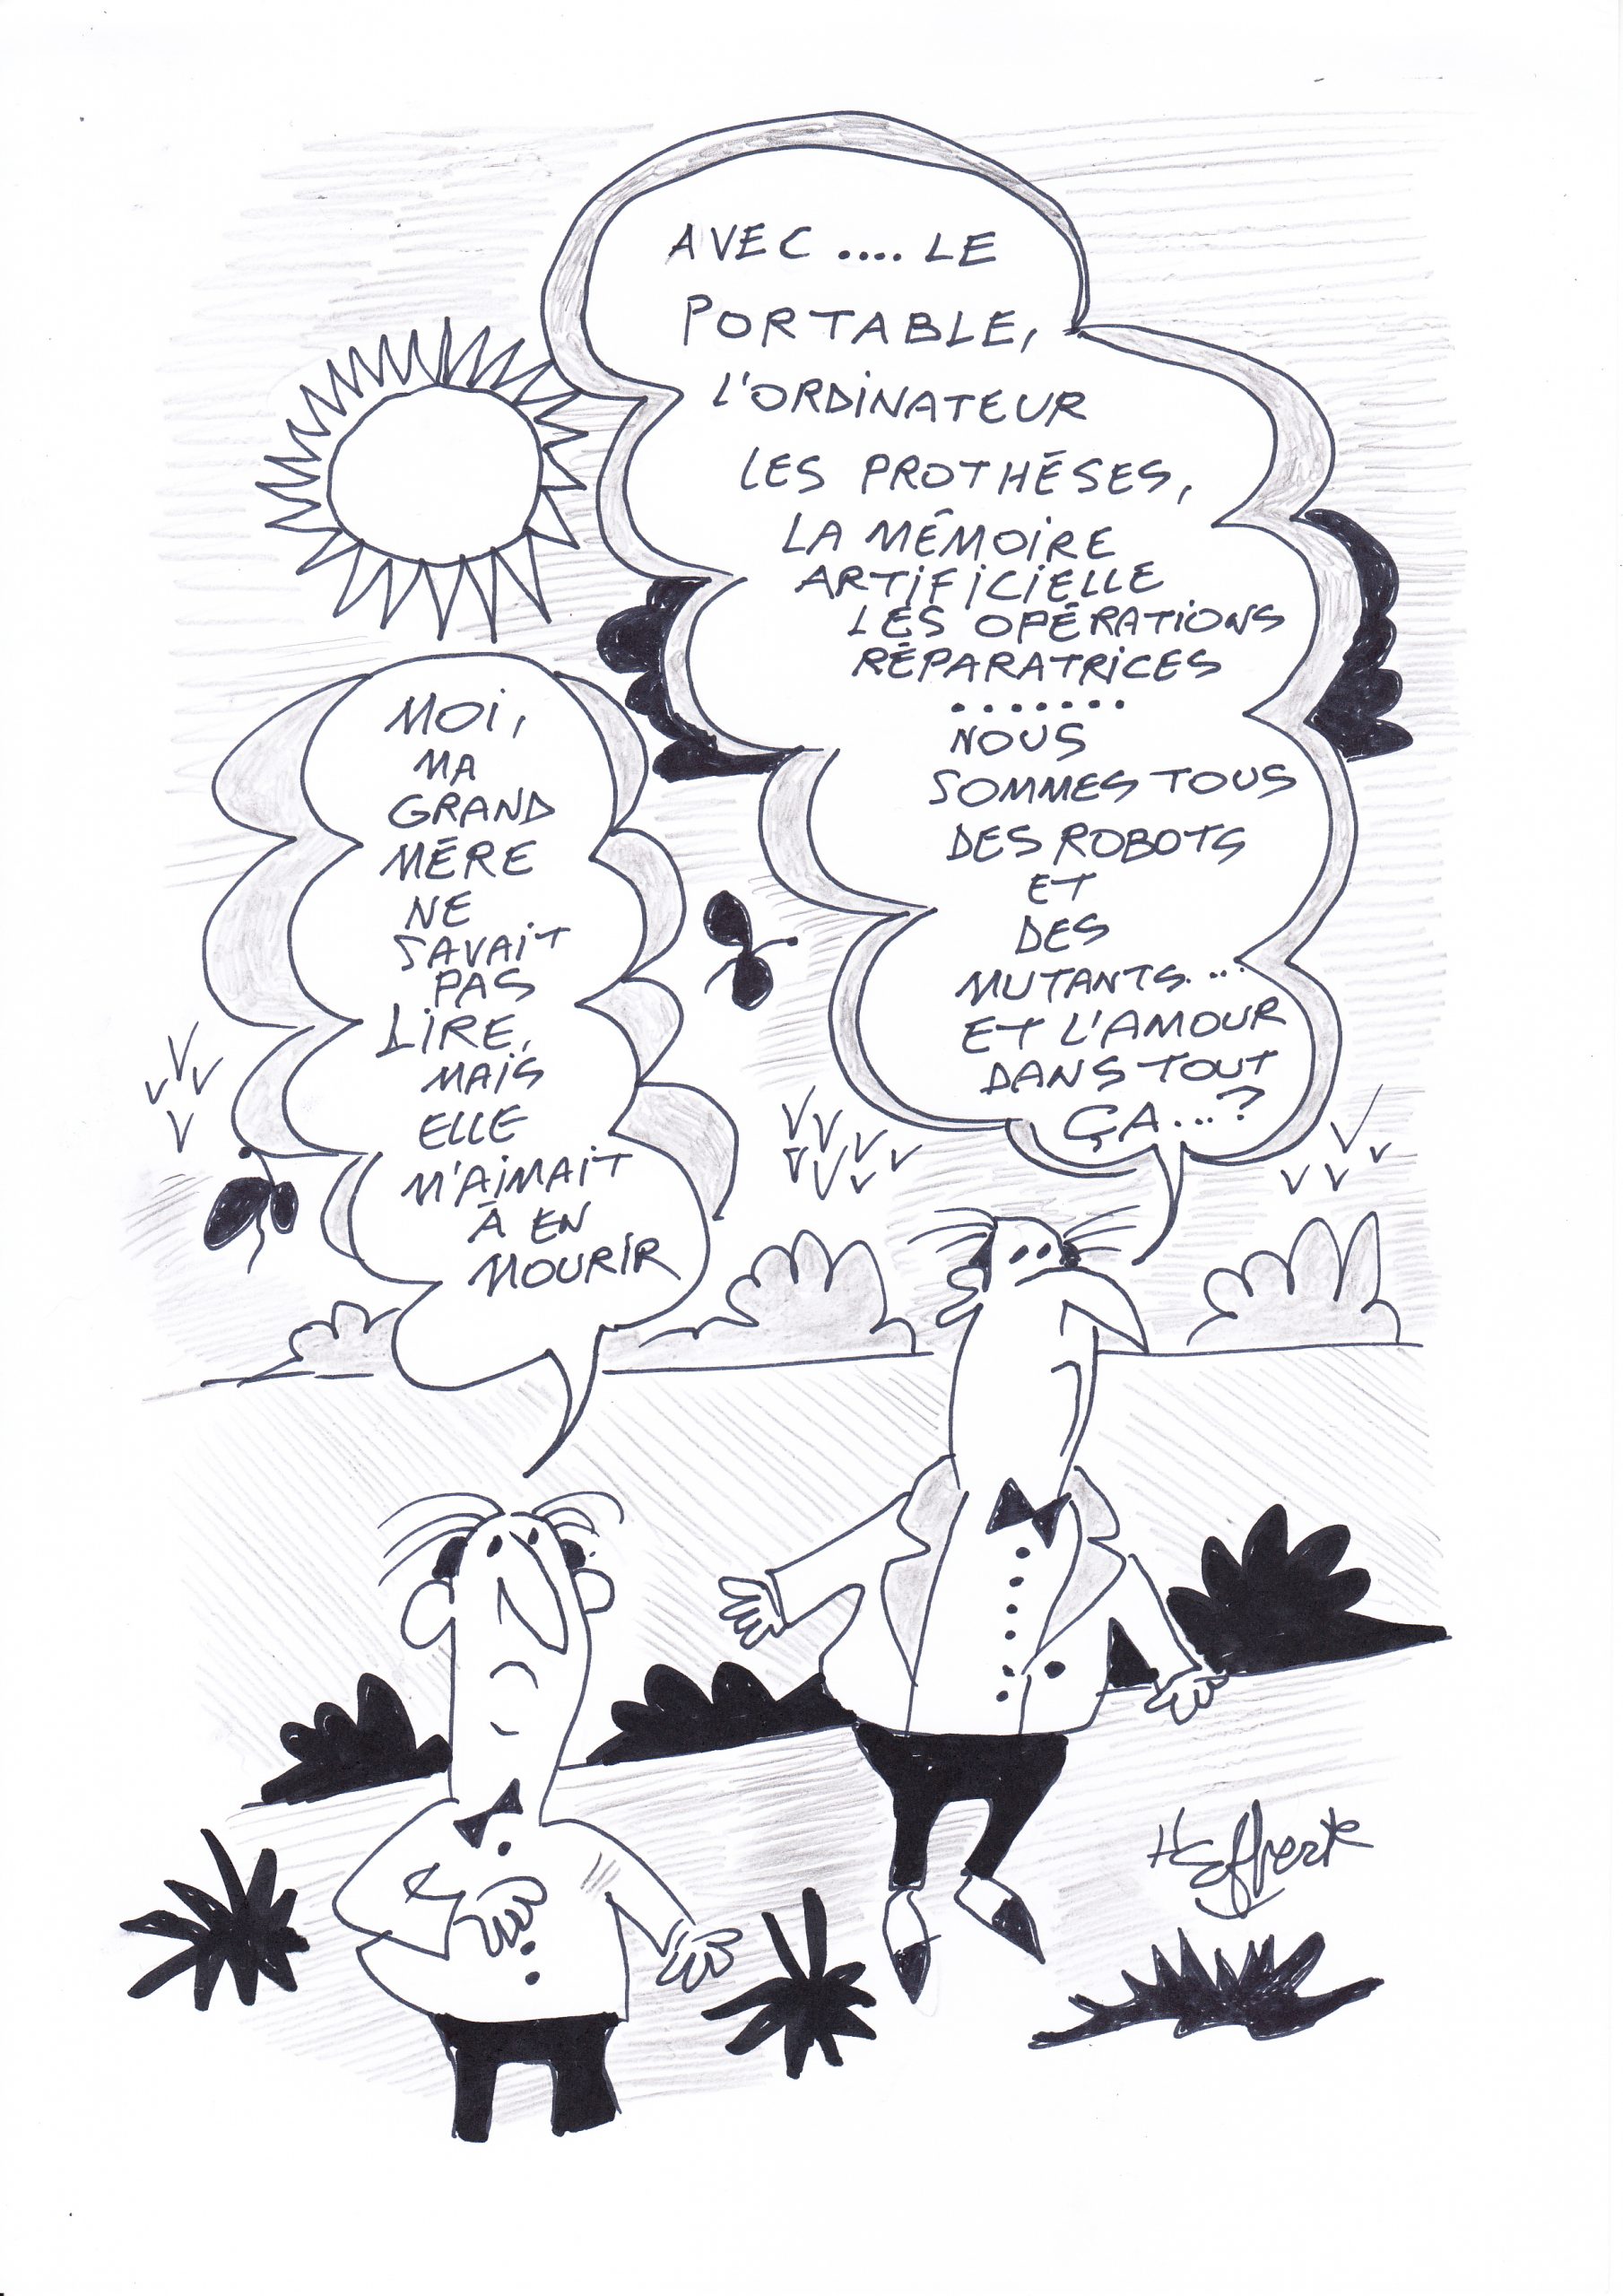 AVEC .... LE
PORTABLE,
L'ORDINATEUR
LES PROTHÉSES,
LA MÉMOIRE
ARTIFICIELLE
LES OPÉRATIONS
RÉPARATRICES
.......
NOUS
SOMMES TOUS
DES ROBOTS
ET
DES
MUTANTS...
ET L'AMOUR
DANS TOUT
ÇA...?
MOI,
MA
GRAND
MÉRE
NE
SAVAIT
PAS
LIRE,
MAIS
ELLE
M'AIMAIT
À EN
MOURIR